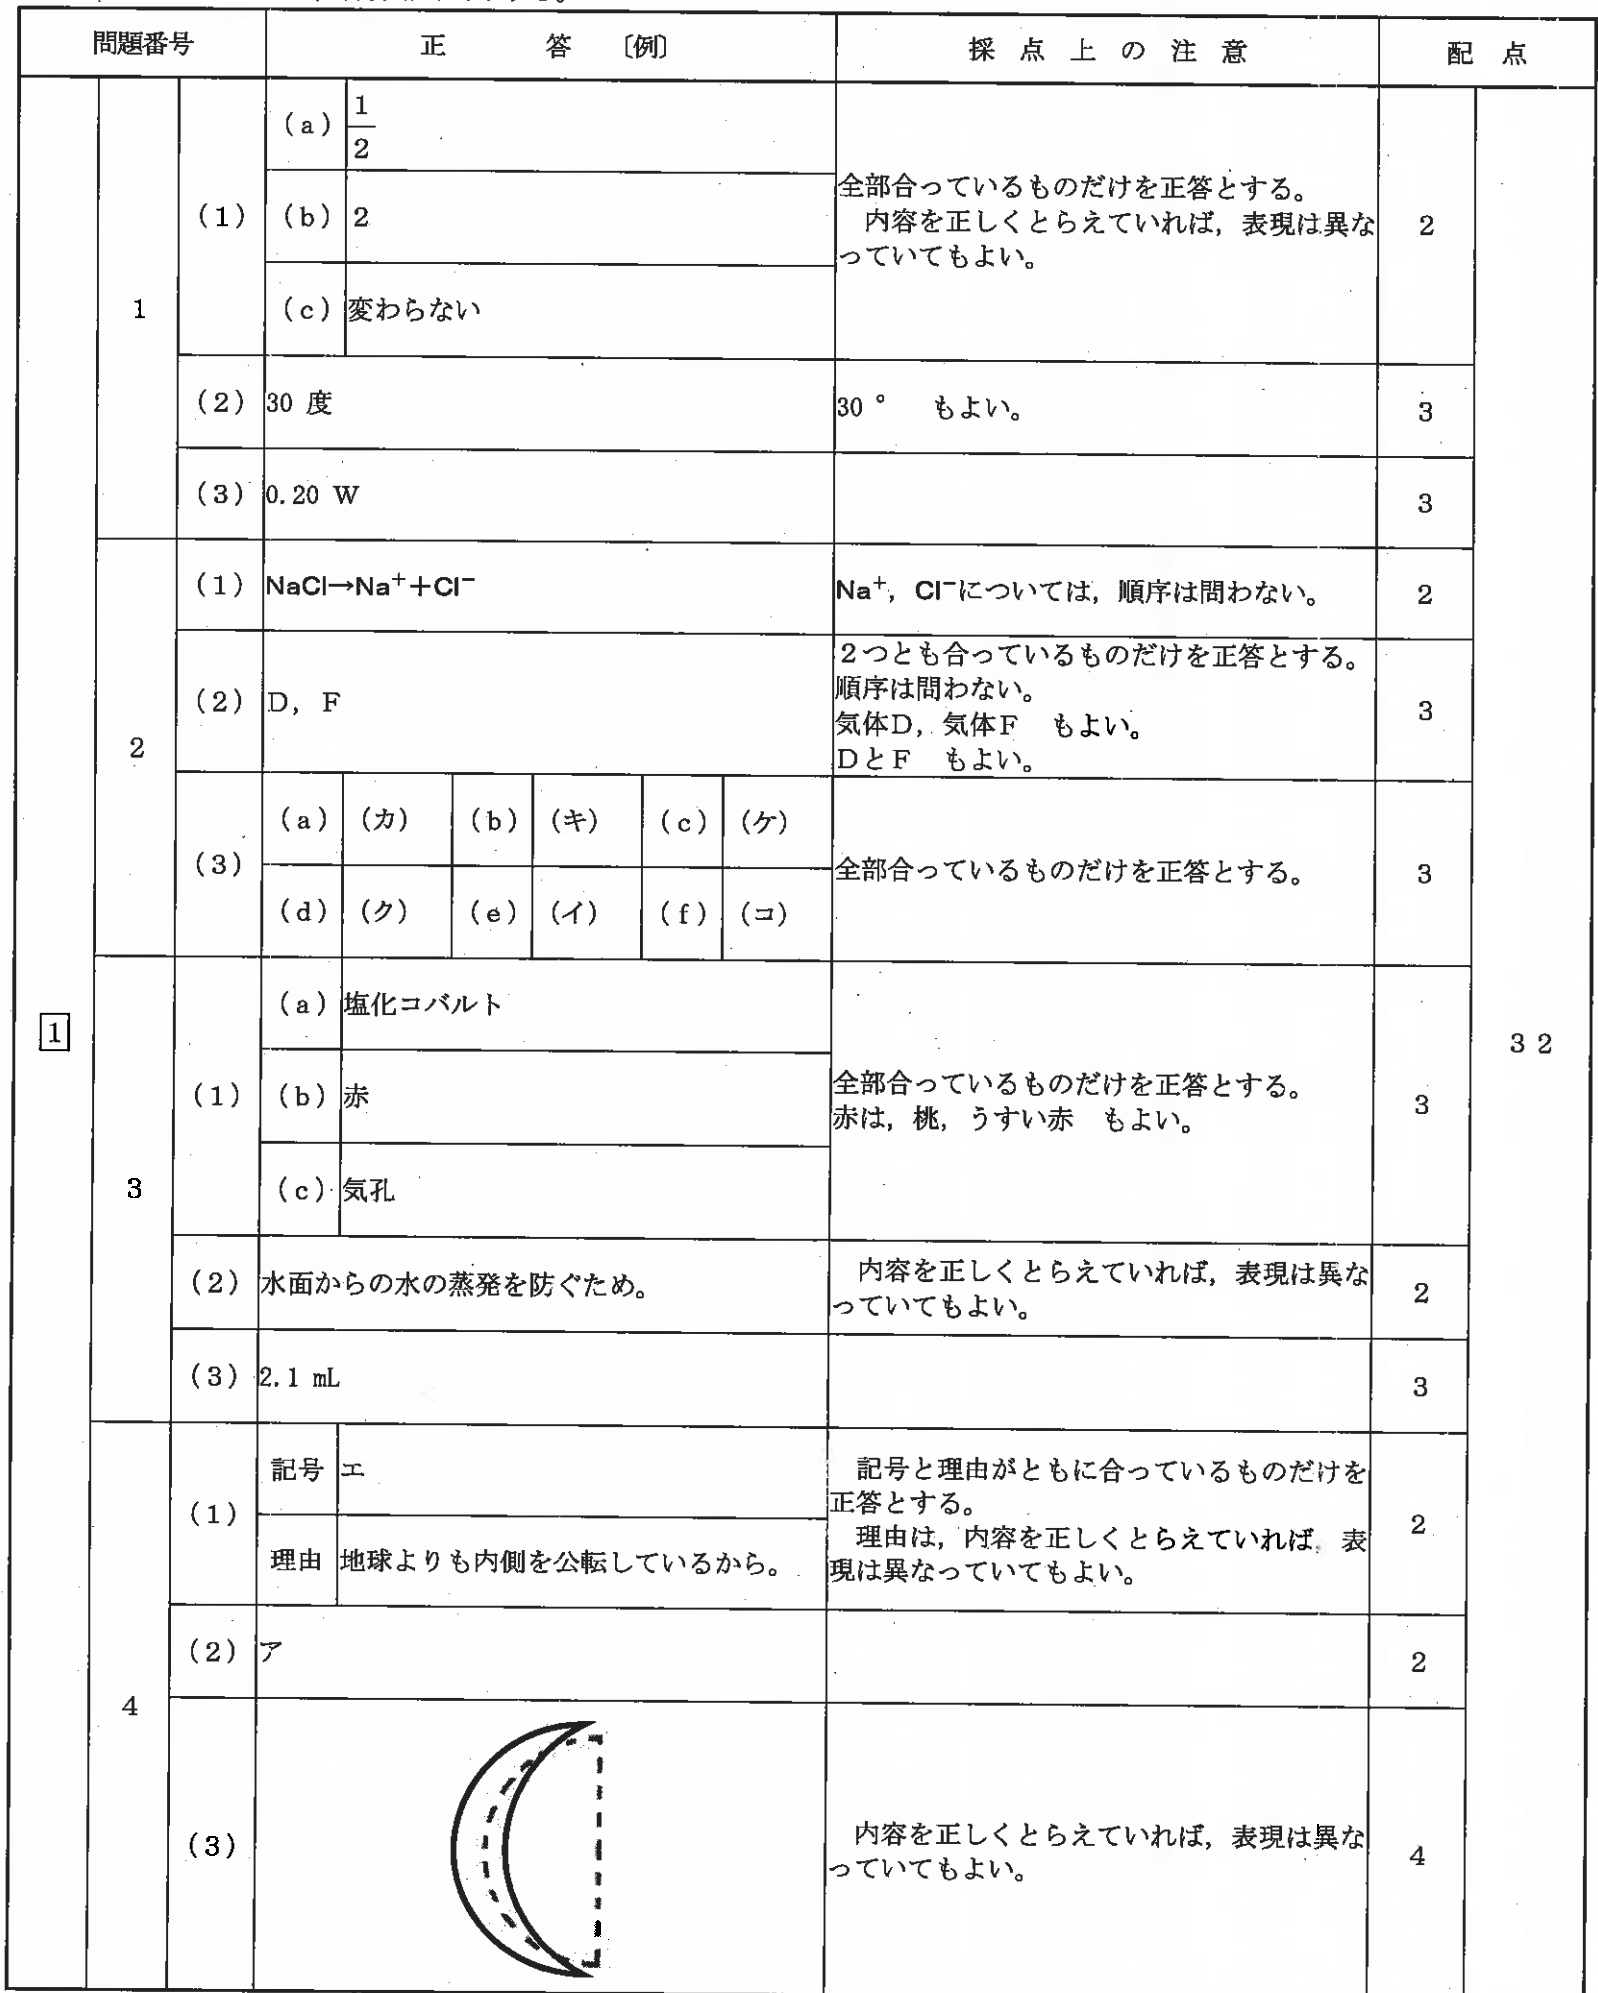 問題番号 正 答 〔例〕 採 点 上 の 注 意 配 点
1
1
(1)
(a) 1/2
(b) 2
(c) 変わらない
全部合っているものだけを正答とする。
内容を正しくとらえていれば，表現は異な
っていてもよい。
2
(2) 30 度 30 ° もよい。 3
(3) 0.20 W 3
2
(1) NaCl→Na⁺＋Cl⁻ Na⁺，Cl⁻については，順序は問わない。 2
(2) D，F
２つとも合っているものだけを正答とする。
順序は問わない。
気体D，気体F もよい。
DとF もよい。
3
(3)
(a) (カ) (b) (キ) (c) (ケ)
(d) (ク) (e) (イ) (f) (コ)
全部合っているものだけを正答とする。
3
3
(1)
(a) 塩化コバルト
(b) 赤
(c) 気孔
全部合っているものだけを正答とする。
赤は，桃，うすい赤 もよい。
3
(2) 水面からの水の蒸発を防ぐため。
内容を正しくとらえていれば，表現は異な
っていてもよい。
2
(3) 2.1 mL 3
4
(1)
記号 エ
理由 地球よりも内側を公転しているから。
記号と理由がともに合っているものだけを
正答とする。
理由は，内容を正しくとらえていれば，表
現は異なっていてもよい。
2
(2) ア 2
(3)
内容を正しくとらえていれば，表現は異な
っていてもよい。
4
32